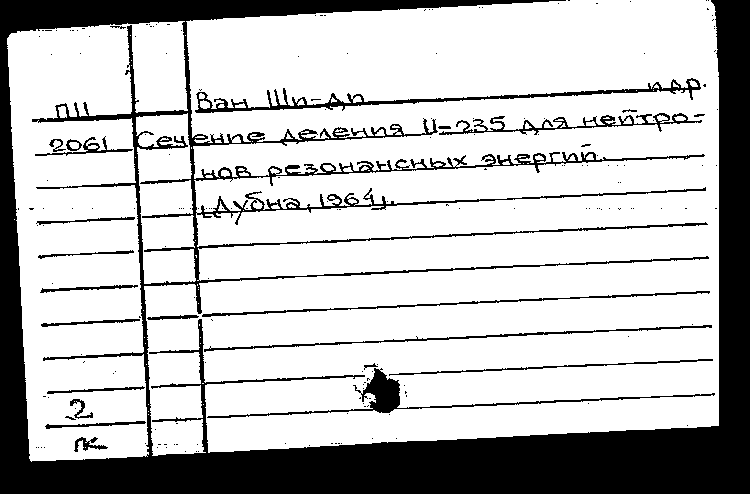 П11 Ван Ши-ди и др.
2061 Сечение деления U-235 для нейтро-
нов резонансных энергий.
[Дубна, 1964].
2
пк